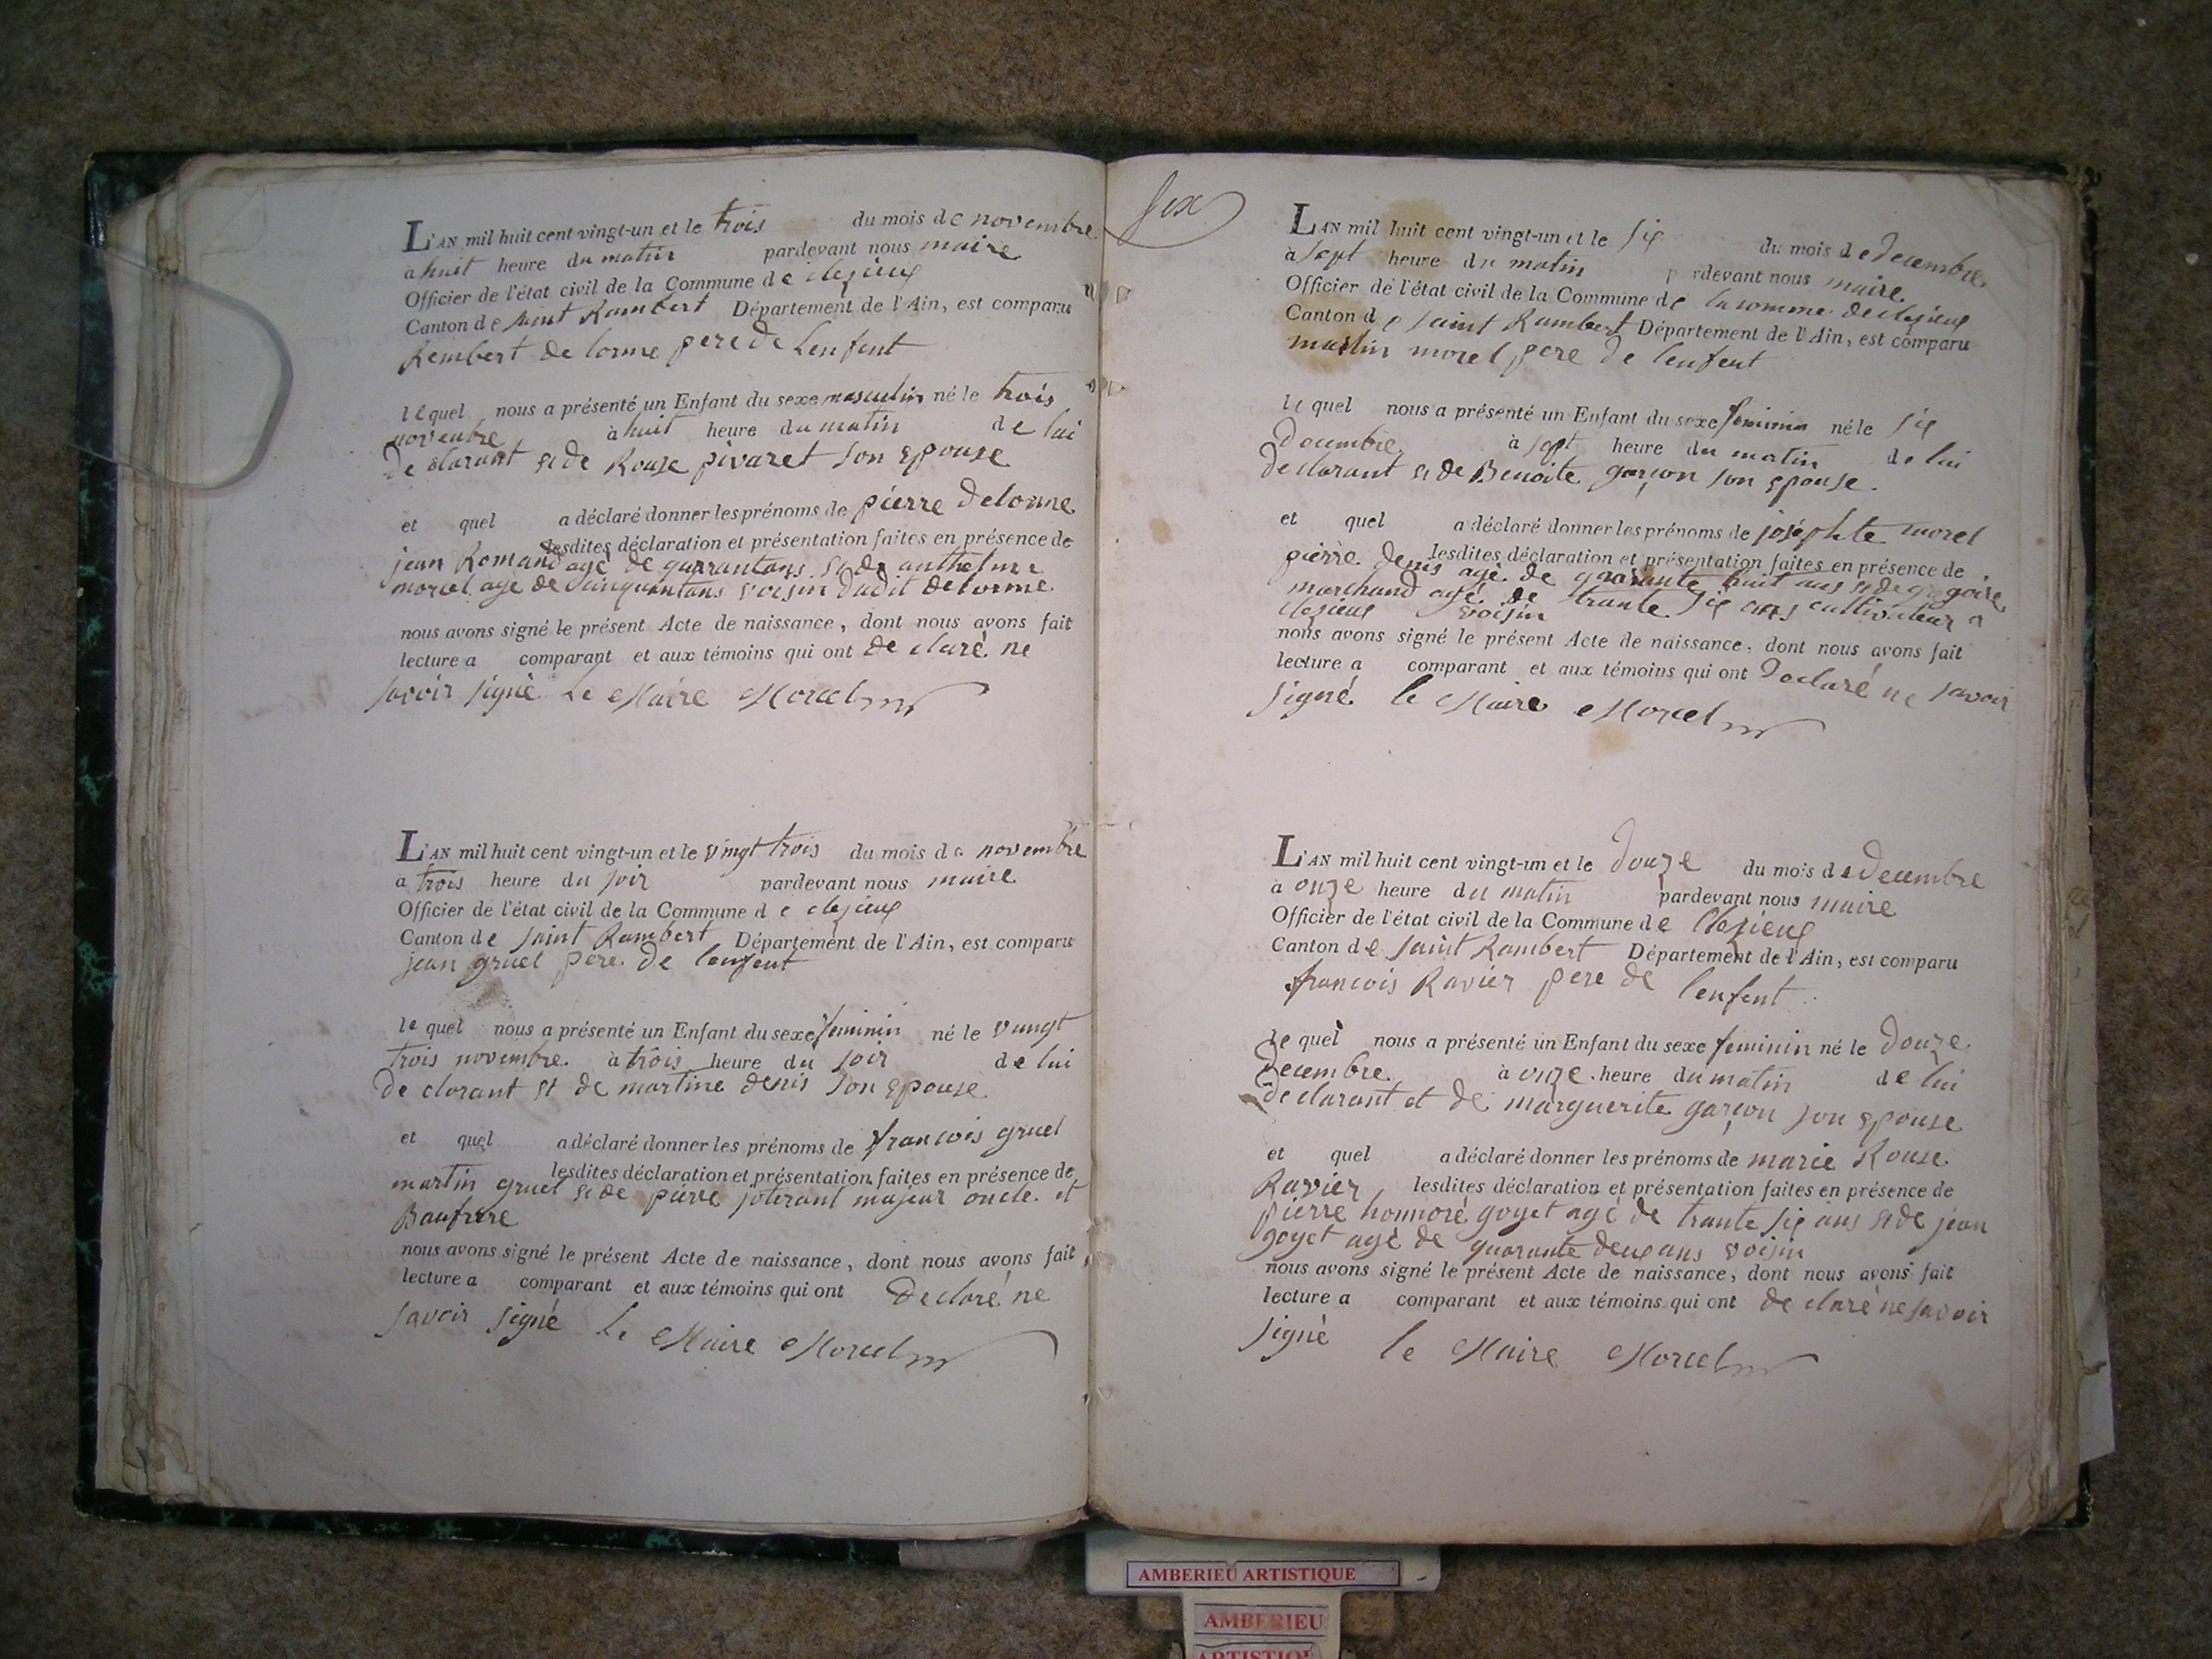 L'AN mil huit cent vingt-un et le trois du mois de novembre
a huit heure du matin pardevant nous maire
Officier de l'état civil de la Commune de clezieux
Canton de saint Rambert Département de l'Ain, est comparu
Rembert de lorme pere de Lenfent
lequel nous a présenté un Enfant du sexe masculin né le trois
novembre à huit heure du matin de lui
de clarant et de Rouze pivaret son epouse
et quel a déclaré donner les prénoms de pierre Delorme
lesdites déclaration et présentation faites en présence de
jean Romand agé de quarrantans et de anthelme
morcel age de sinquantans voisin dudit delorme
nous avons signé le présent Acte de naissance, dont nous avons fait
lecture a comparant et aux témoins qui ont de claré ne
savoir signé Le Maire Morcel
L'AN mil huit cent vingt-un et le vingt trois du mois de novembre
a trois heure du soir pardevant nous maire
Officier de l'état civil de la Commune de clezieux
Canton de saint Rambert Département de l'Ain, est comparu
jean gruel pere de lenfent
le quel nous a présenté un Enfant du sexe feminin né le vingt
trois novembre à trois heure du soir de lui
de clarant et de martine denis son epouse
et quel a déclaré donner les prénoms de francois gruel
lesdites déclaration et présentation faites en présence de
martin gruel et de pierre joterant majeur oncle et
Baufrere
nous avons signé le présent Acte de naissance, dont nous avons fait
lecture a comparant et aux témoins qui ont Declaré ne
savoir signé Le Maire Morcel
L'AN mil huit cent vingt-un et le six du mois de decembre
à sept heure du matin pardevant nous maire
Officier de l'état civil de la Commune de la comme de clezieux
Canton de saint Rambert Département de l'Ain, est comparu
martin morel pere de lenfent
le quel nous a présenté un Enfant du sexe feminin né le six
Decembre à sept heure du matin de lui
de clarant et de Benoite garçon son epouse.
et quel a déclaré donner les prénoms de joséphte morel
lesdites déclaration et présentation faites en présence de
pierre denis agé de quarante huit ans et de gregoire
marchand agé de trante six ans cultivateur a
clezieux voisin
nous avons signé le présent Acte de naissance, dont nous avons fait
lecture a comparant et aux témoins qui ont Declaré ne savoir
signé le Maire Morcel
L'AN mil huit cent vingt-un et le douze du mois de Decembre
à onze heure du matin pardevant nous maire
Officier de l'état civil de la Commune de Clezieux
Canton de saint Rambert Département de l'Ain, est comparu
francois Ravier pere de lenfent
le quel nous a présenté un Enfant du sexe feminin né le douze
Decembre à onze heure du matin de lui
de clarant et de marguerite garçon son epouse
et quel a déclaré donner les prénoms de marie Rouze
Ravier lesdites déclaration et présentation faites en présence de
pierre honnoré goyet agé de trante six ans et de jean
goyet agé de quarante deux ans voisin
nous avons signé le présent Acte de naissance, dont nous avons fait
lecture a comparant et aux témoins qui ont de claré ne savoir
signé le Maire Morcel
AMBERIEU ARTISTIQUE
AMBERIEU